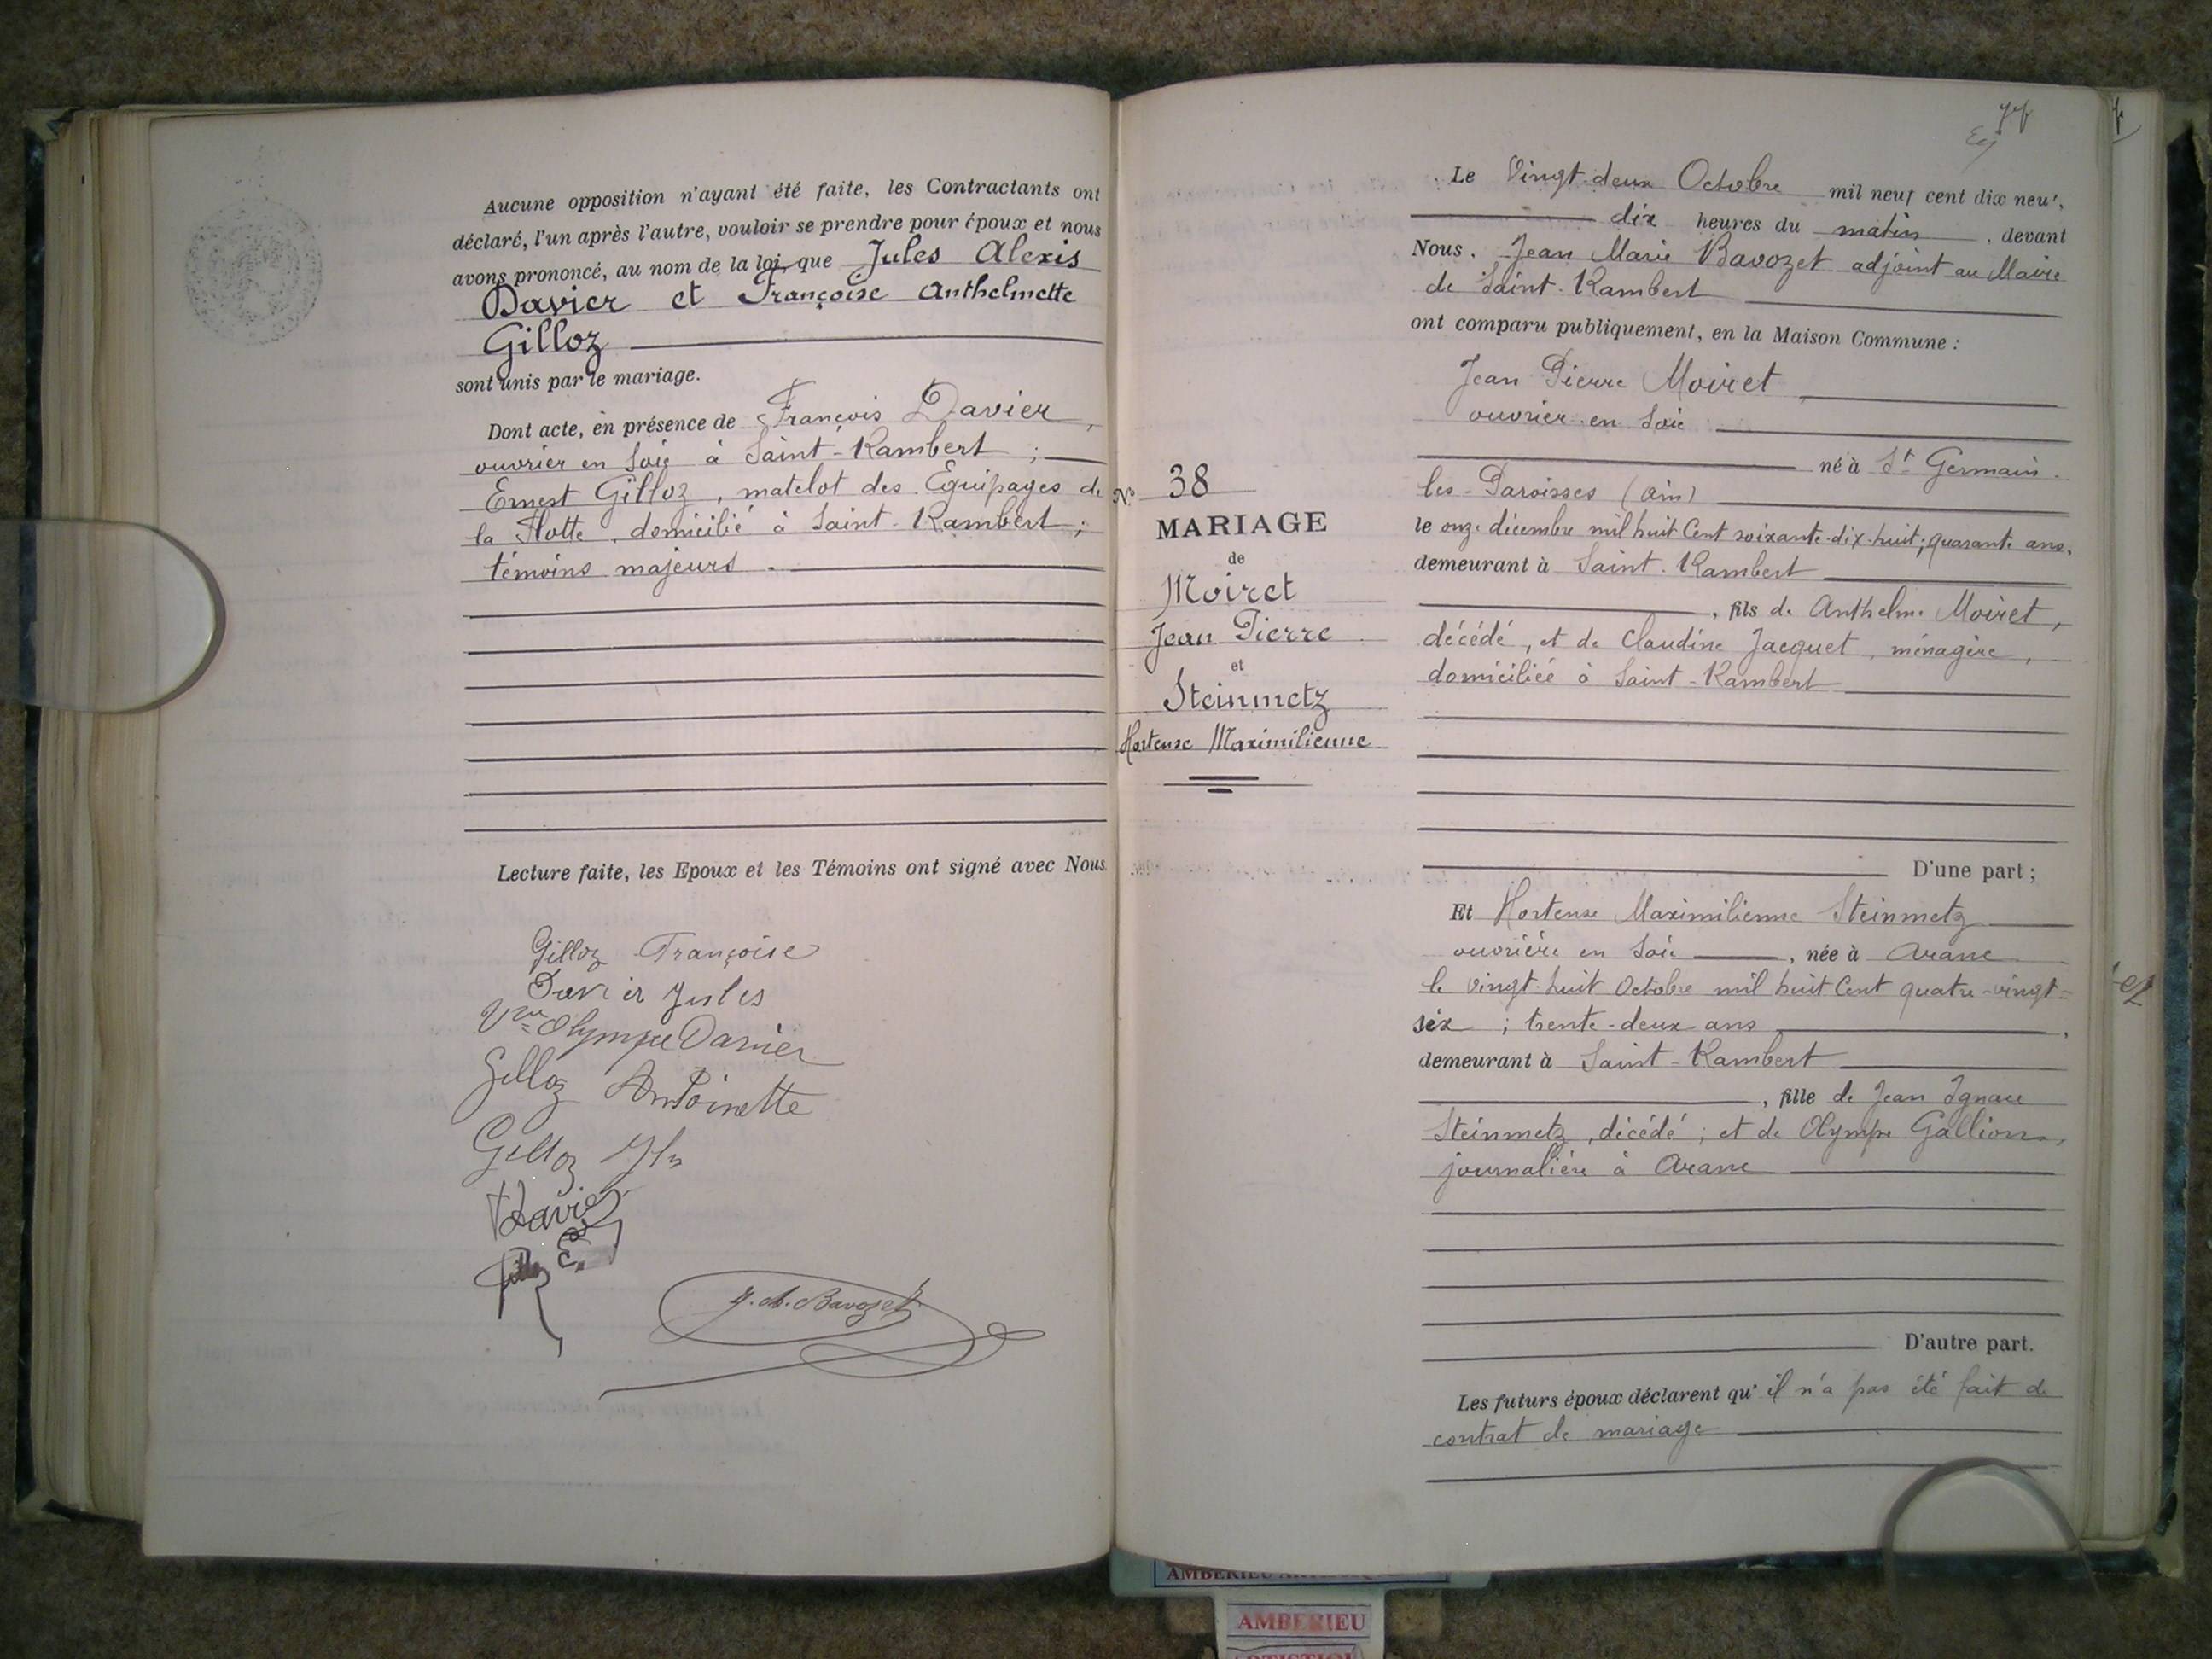 Aucune opposition n'ayant été faite, les Contractants ont
déclaré, l'un après l'autre, vouloir se prendre pour époux et nous
avons prononcé, au nom de la loi, que Jules Alexis
Davier et Françoise Anthelmette
Gilloz
sont unis par le mariage.
Dont acte, en présence de François Davier,
ouvrier en soie à Saint-Rambert ;
Ernest Gilloz, matelot des Equipages de
la Flotte, domicilié à Saint-Rambert ;
témoins majeurs.
Lecture faite, les Epoux et les Témoins ont signé avec Nous.
Gilloz Françoise
Davier Jules
Vve Olympe Davier
Gilloz Antoinette
Gilloz
Davier
J. M. Bavozet
No 38
MARIAGE
de
Moiret
Jean Pierre
et
Steinmetz
Hortense Maximilienne
Le Vingt-deux Octobre mil neuf cent dix neuf,
dix heures du matin, devant
Nous, Jean Marie Bavozet adjoint au Maire
de Saint-Rambert
ont comparu publiquement, en la Maison Commune :
Jean Pierre Moiret,
ouvrier en soie
né à St Germain-
les-Paroisses (Ain)
le onze décembre mil huit Cent soixante-dix-huit ; quarante ans,
demeurant à Saint-Rambert
, fils de Anthelme Moiret,
décédé, et de Claudine Jacquet, ménagère,
domiciliée à Saint-Rambert
D'une part ;
Et Hortense Maximilienne Steinmetz
ouvrière en soie, née à Arane
le vingt-huit Octobre mil huit Cent quatre-vingt-
six ; trente-deux ans,
demeurant à Saint-Rambert
, fille de Jean Ignace
Steinmetz, décédé ; et de Olympe Gallion,
journalière à Arane
D'autre part.
Les futurs époux déclarent qu'il n'a pas été fait de
contrat de mariage
AMBERIEU